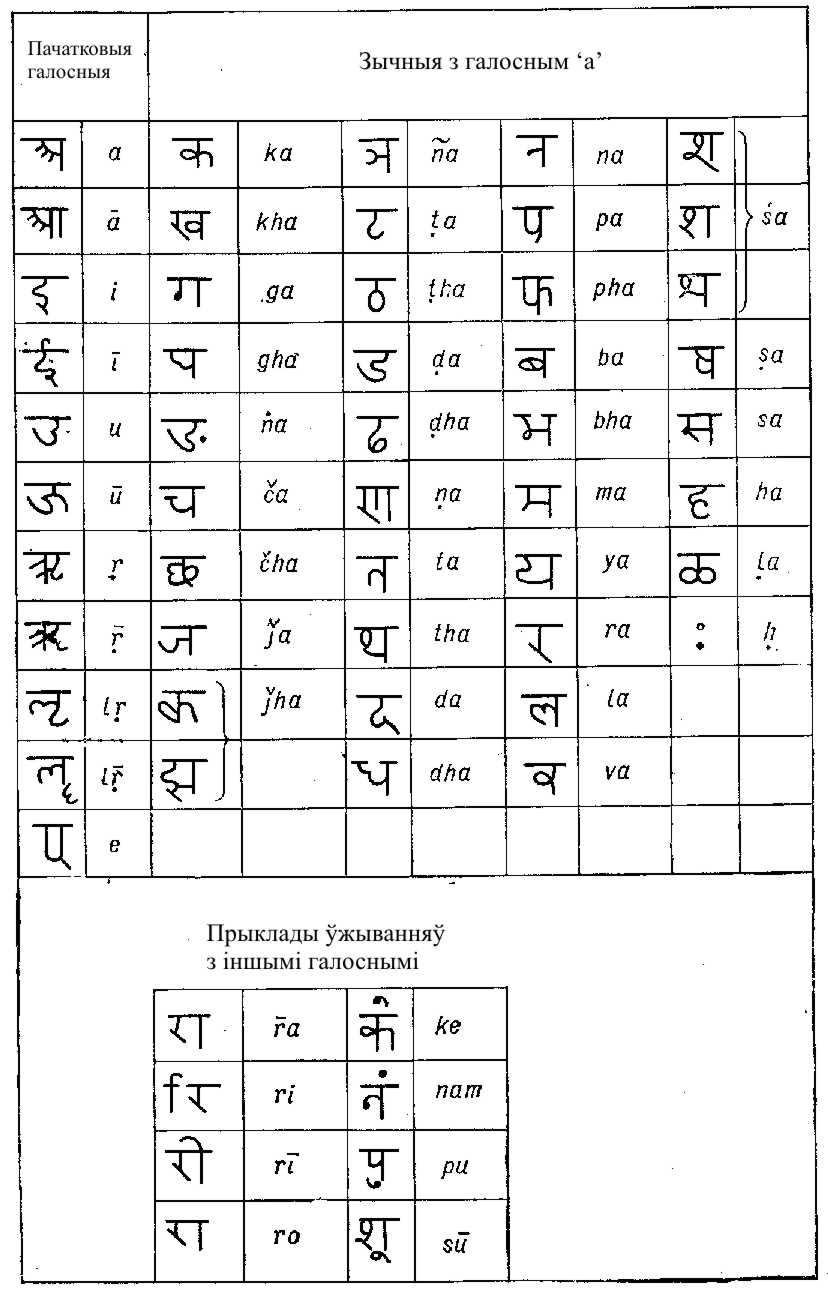 Пачатковыя
галосныя
Зычныя з галосным ‘а’
अ a क ka ञ ña न na श
आ ā ख kha ट ṭa प pa श śa
इ i ग ga ठ ṭha फ pha श
ई ī घ gha ड ḍa ब ba ष ṣa
उ u ङ ṅa ढ ḍha भ bha स sa
ऊ ū च ča ण ṇa म ma ह ha
ऋ ṛ छ čha त ta य ya ळ ḷa
ॠ ṝ ज ǰa थ tha र ra ः ḥ
ऌ lṛ झ ǰha द da ल la
ॡ lṝ झ ध dha व va
ए e
Прыклады ўжыванняў
з іншымі галоснымі
रा r̄a के ke
रि ri नं nam
री rī पु pu
ro शू sū